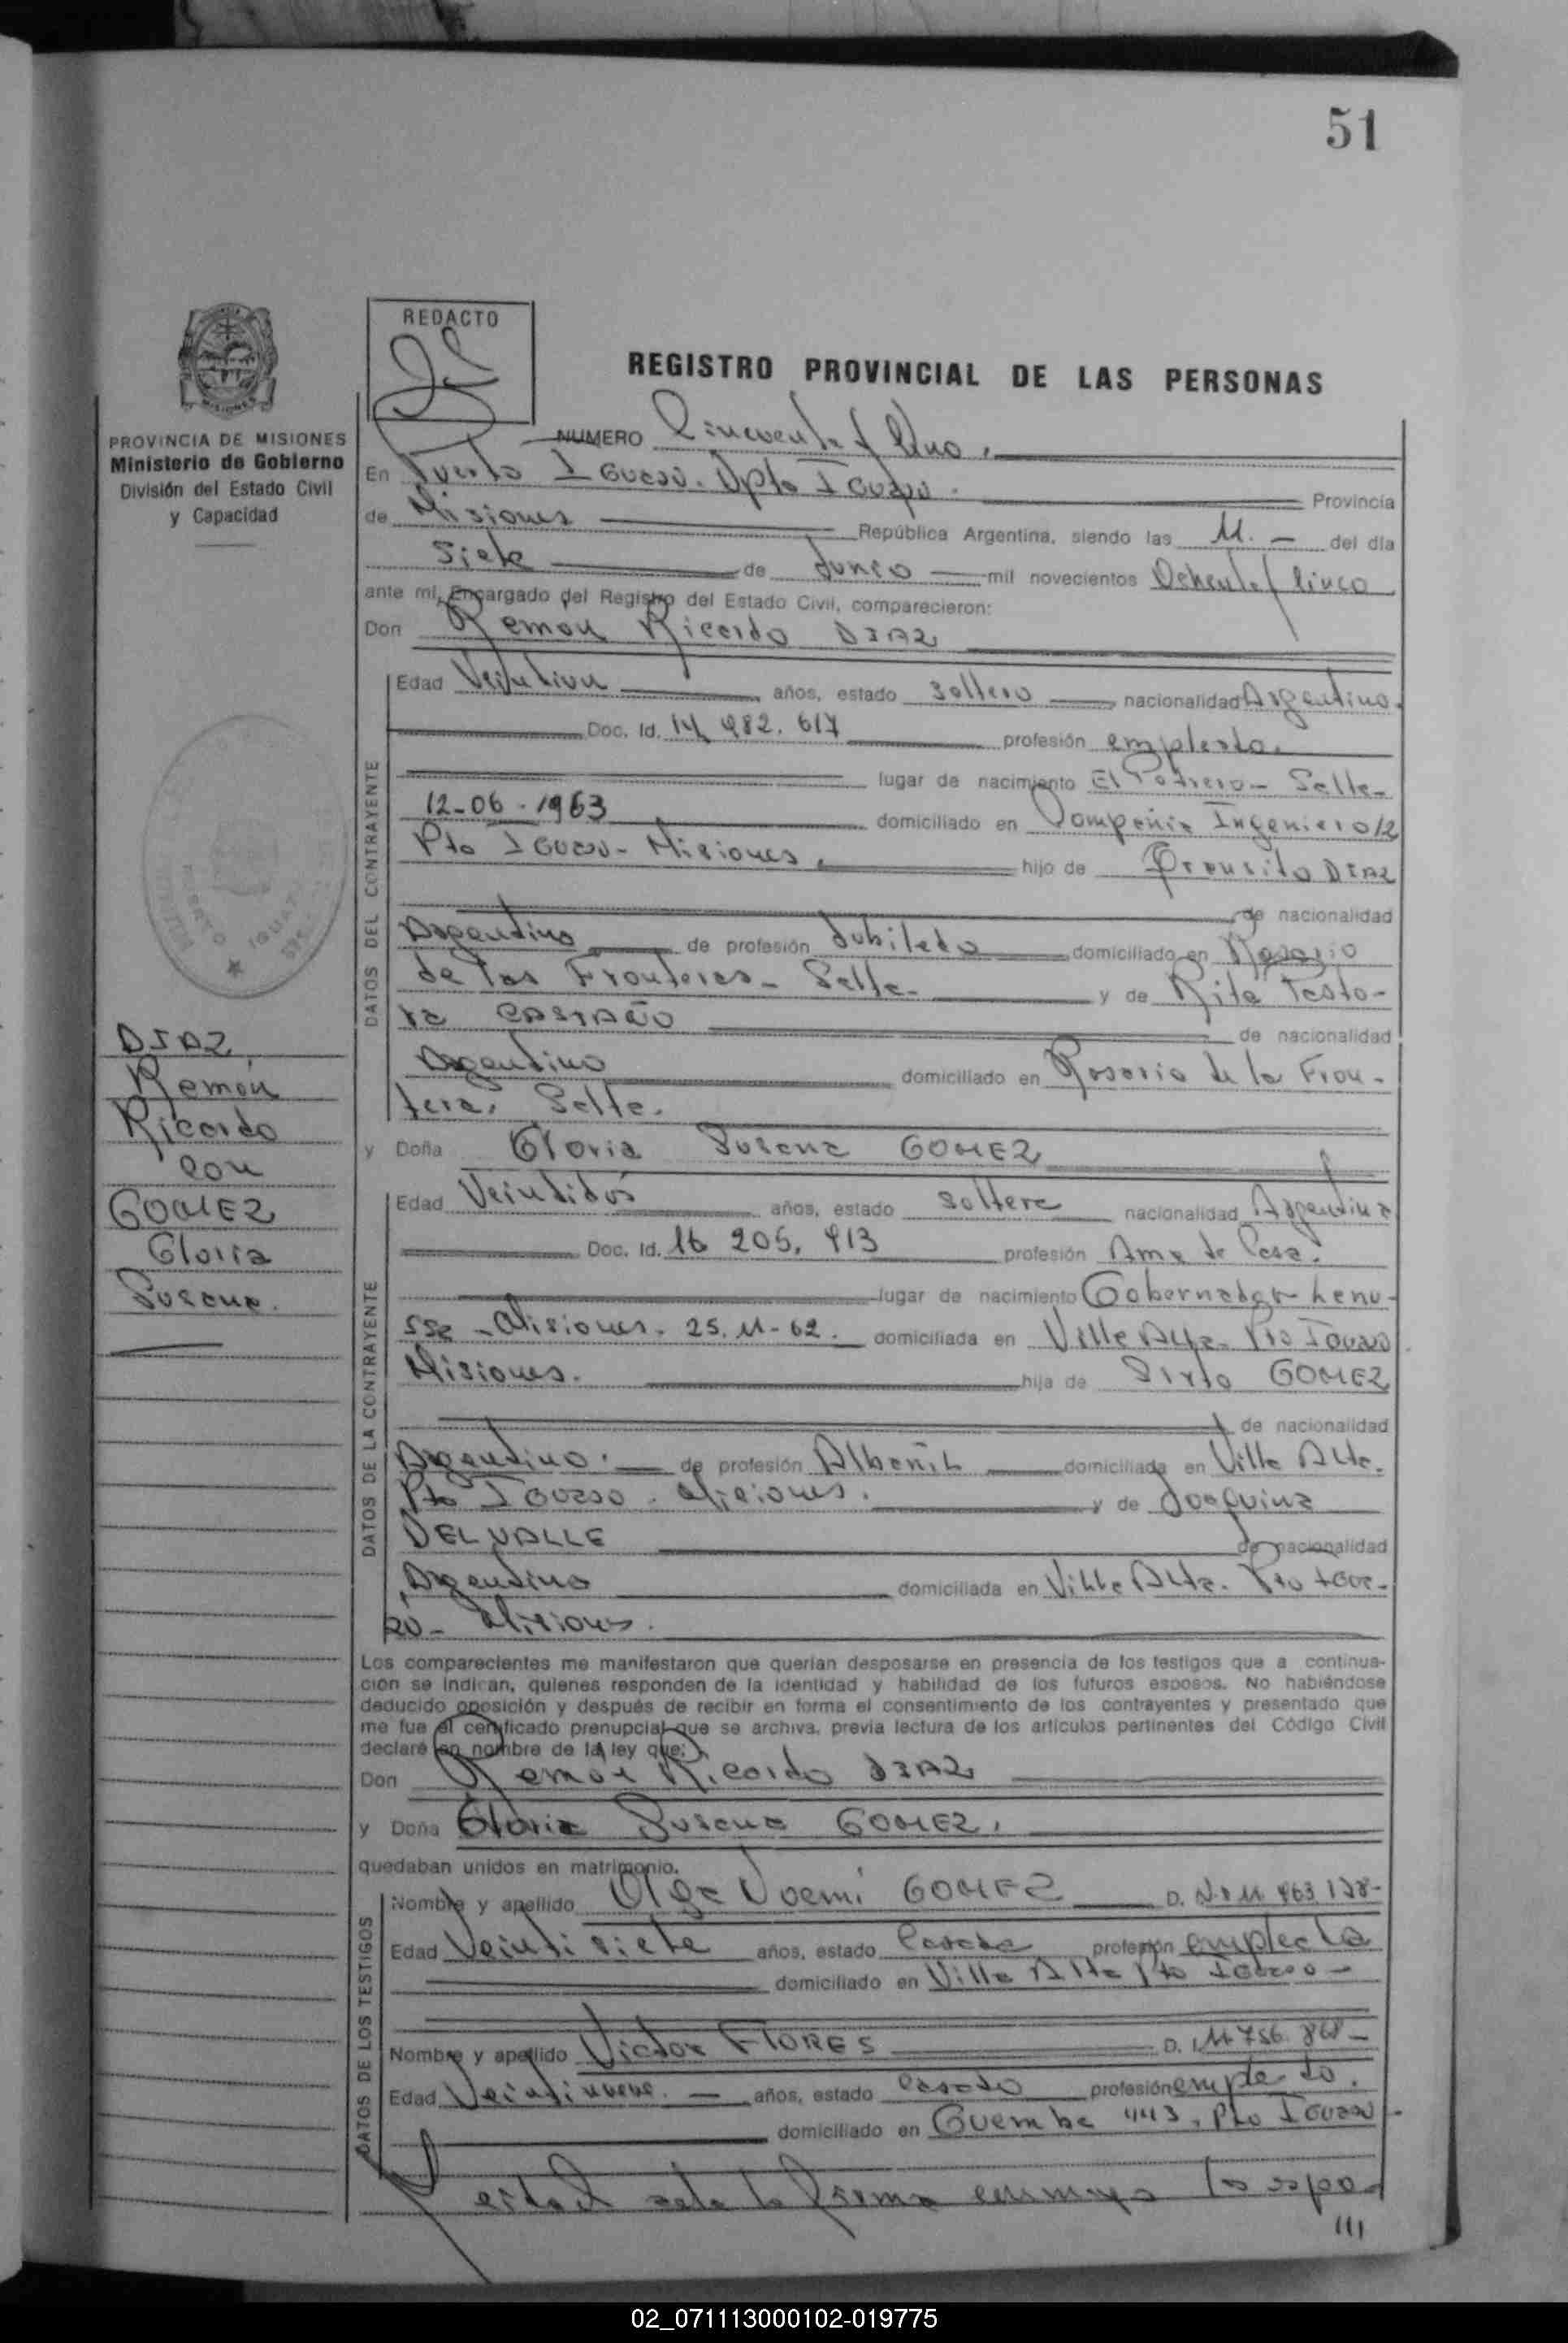 51
REDACTO
REGISTRO PROVINCIAL DE LAS PERSONAS
PROVINCIA DE MISIONES
Ministerio de Gobierno
División del Estado Civil
y Capacidad
NUMERO Cincuenta y Uno.
En Puerto Iguazú. Dpto Iguazú. Provincia
de Misiones República Argentina, siendo las 11. - del día
Siete de Junio mil novecientos Ochenta y Cinco
ante mí, Encargado del Registro del Estado Civil, comparecieron:
Don Ramon Ricardo DIAZ
DATOS DEL CONTRAYENTE
Edad Veintiun años, estado soltero nacionalidad Argentino.
Doc. Id. 14 982. 617 profesión empleado.
lugar de nacimiento El Potrero - Salta-
12-06-1963 domiciliado en Compañia Ingeniero 12
Pto Iguazú - Misiones, hijo de DIAZ
de nacionalidad
Argentino de profesión Jubilado domiciliado en Rosario
de las Fronteras - Salta - y de Rita Testo-
ra CASTAÑO de nacionalidad
Argentina domiciliado en Rosario de la Fron-
tera. Salta.
DIAZ,
Ramón
Ricardo
con
GOMEZ
Gloria
Susana.
y Doña Gloria Susana GOMEZ
DATOS DE LA CONTRAYENTE
Edad Veintidós años, estado soltera nacionalidad Argentina
Doc. Id. 16 205. 913 profesión Ama de Casa.
lugar de nacimiento Gobernador Lanu-
sse - Misiones. 25. 11 - 62. domiciliada en Villa Alta - Pto Iguazú
Misiones. hija de Sixto GOMEZ
de nacionalidad
Argentino. de profesión Albañil domiciliada en Villa Alta.
Pto Iguazú. Misiones. y de Joaquina
DEL VALLE de nacionalidad
Argentina domiciliada en Villa Alta. Pto Igua-
zú - Misiones.
Los comparecientes me manifestaron que querían desposarse en presencia de los testigos que a continua-
ción se indican, quienes responden de la identidad y habilidad de los futuros esposos. No habiéndose
deducido oposición y después de recibir en forma el consentimiento de los contrayentes y presentado que
me fue el certificado prenupcial que se archiva, previa lectura de los artículos pertinentes del Código Civil
declaré en nombre de la ley que:
Don Ramon Ricardo DIAZ
y Doña Gloria Susana GOMEZ.
quedaban unidos en matrimonio.
DATOS DE LOS TESTIGOS
Nombre y apellido Olga Noemí GOMEZ D. 11 463 128-
Edad Veintisiete años, estado Casada profesión empleada
domiciliado en Villa Alta Pto Iguazú -
Nombre y apellido Victor FLORES D. 11 756. 868-
Edad Veintinueve. - años, estado casado profesión empleado.
domiciliado en Guembe 443, Pto Iguazú -
la firma conmigo los espo-
///
02_071113000102-019775